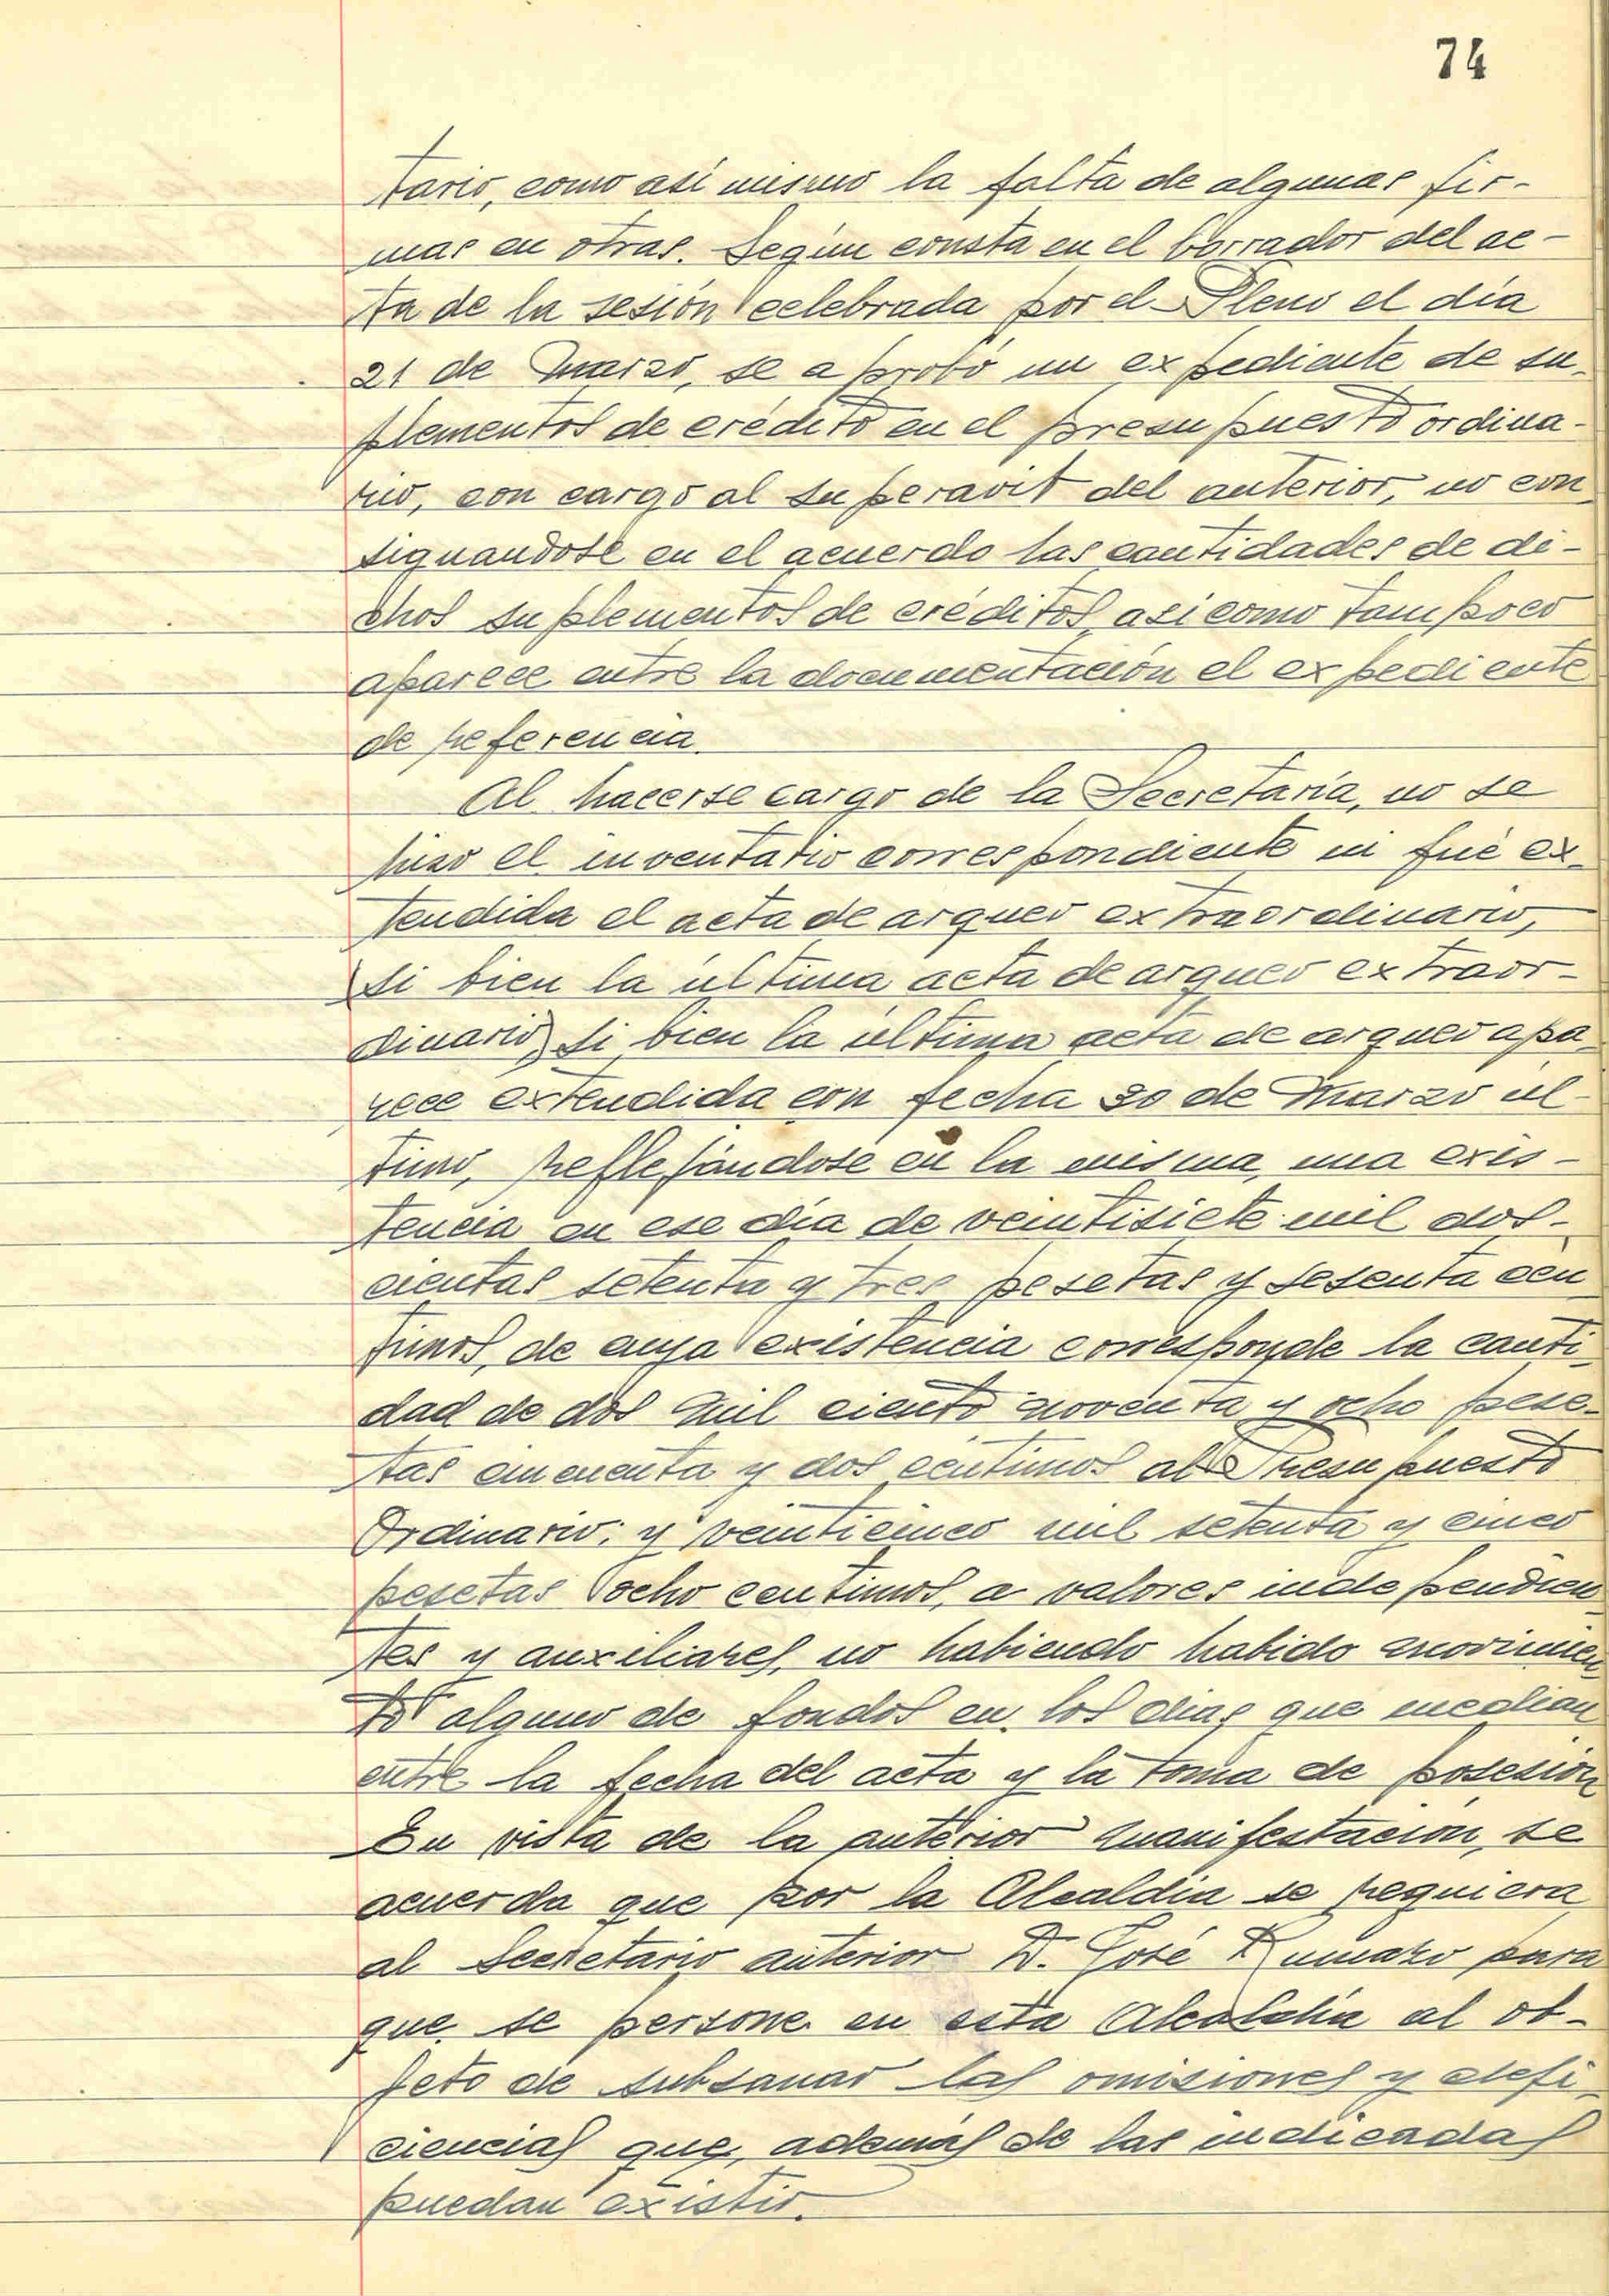 74
tario, como así mismo la falta de algunas fir-
mas en otras. Según consta en el borrador del ac-
ta de la sesión celebrada por el Pleno el día
21 de Marzo, se aprobó un expediente de su-
plementos de crédito en el presupuesto ordina-
rio, con cargo al superavit del anterior, no con-
signandose en el acuerdo las cantidades de di-
chos suplementos de créditos, asi como tampoco
aparece entre la documentación el expediente
de referencia.
Al hacerse cargo de la Secretaría, no se
hizo el inventario correspondiente ni fué ex-
tendida el acta de arqueo extraordinario,
(si bien la última acta de arqueo extraor-
dinario) si bien la última acta de arqueo apa-
rece extendida con fecha 30 de Marzo úl-
timo, reflejándose en la misma, una exis-
tencia en ese día de veintisiete mil dos-
cientas setenta y tres pesetas y sesenta cén
timos, de cuya existencia corresponde la canti-
dad de dos mil ciento noventa y ocho pese-
tas cincuenta y dos céntimos al Presupuesto
Ordinario; y veinticinco mil setenta y cinco
pesetas ocho centimos, a valores independien-
tes y auxiliares, no habiendo habido movimien-
to alguno de fondos en los dias que median
entre la fecha del acta y la toma de posesión
En vista de la anterior manifestación, se
acuerda que por la Alcaldía se requiera
al Secretario anterior D. José Rumazo para
que se persone en esta Alcaldía al ob-
jeto de subsanar las omisiones y defi-
ciencias que, además de las indicadas
puedan existir.